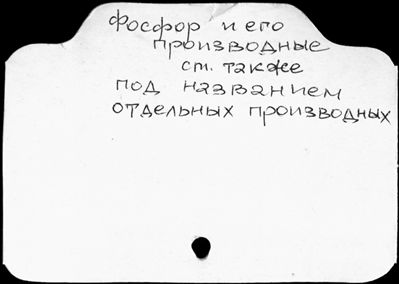 Фосфор и его
производные
см. также
под названием
отдельных производных